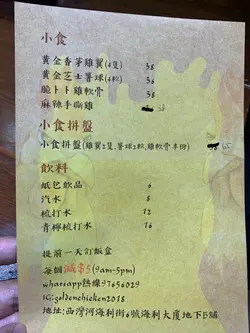 小食
黃金香茅雞翼(4隻) 38
黃金芝士薯球(6粒) 36
脆卜卜雞軟骨 38
麻辣手撕雞 38
小食拼盤
小食拼盤(雞翼2隻,薯球2粒,雞軟骨半份)
飲料
紙包飲品 6
汽水 8
梳打水 12
青檸梳打水 16
提前一天訂飯盒
每個減$5(9am-5pm)
whatsapp熱線97656029
IG:goldenchicken2018
地址:西灣河海利街6號海利大廈地下B舖